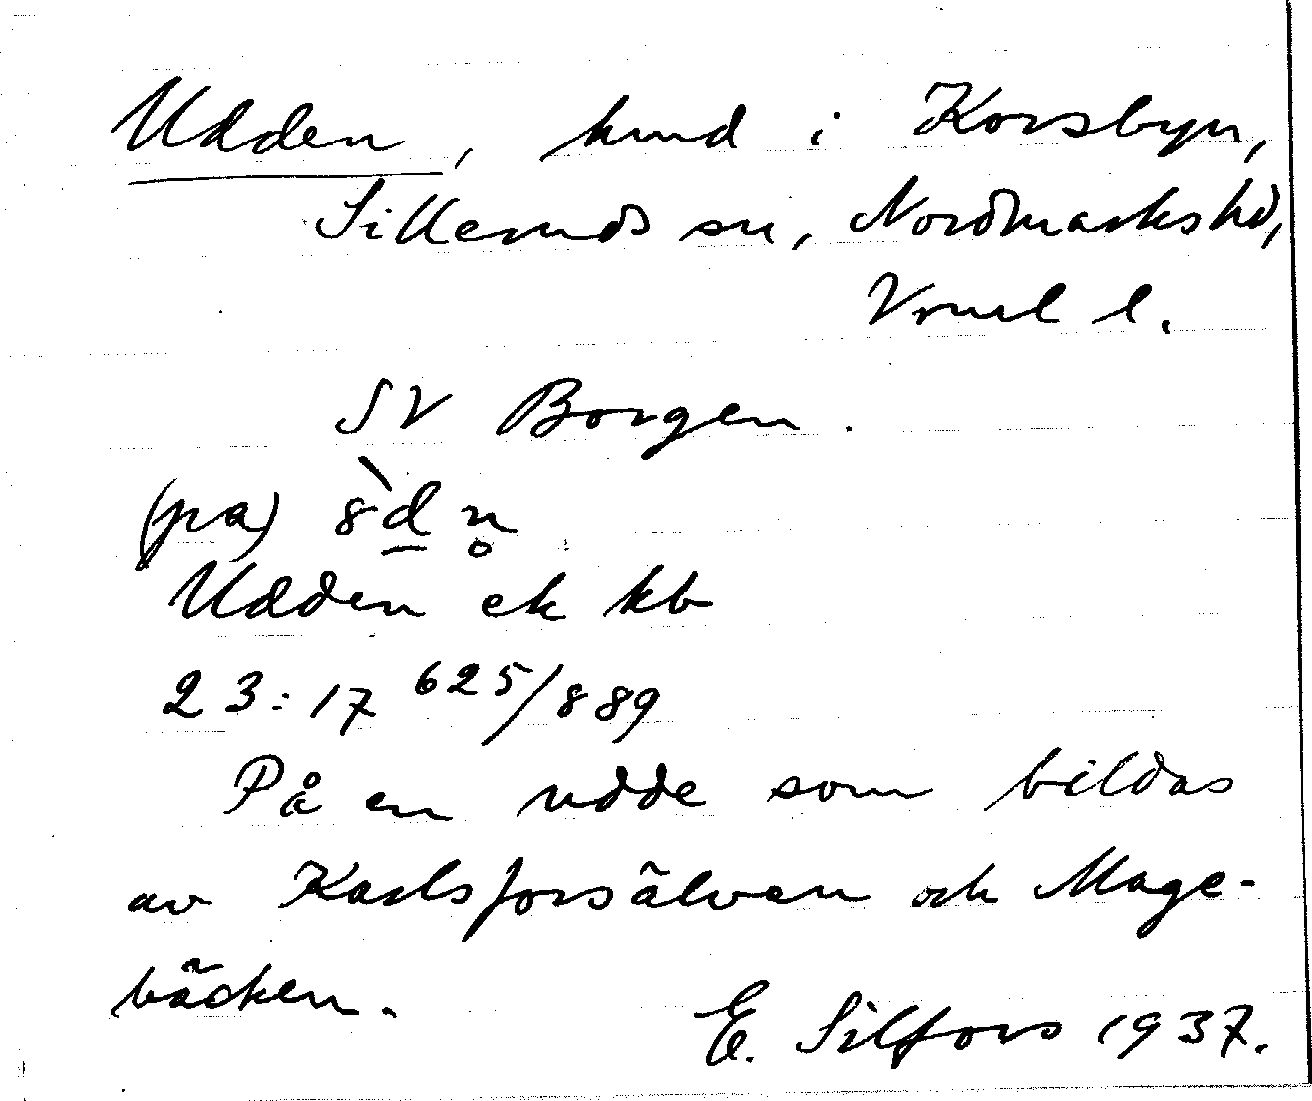 Udden, hmd i Korsbyn,
Silleruds sn, Nordmarks hd,
Vrml l.
SV Borgen.
(pa) 8̀d̲n̥
Udden ek kb
23:17 625/889
På en udde som bildas
av Karlsforsälven och Mage-
bäcken.
E. Silfors 1937.